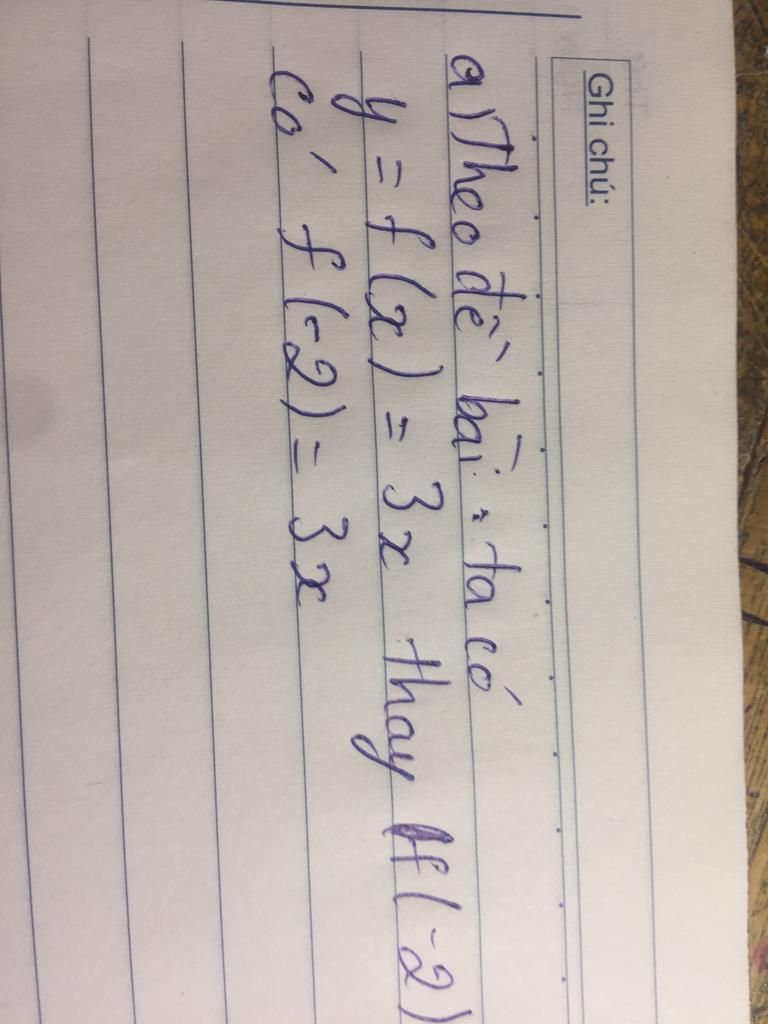 Ghi chú:
a) Theo đề bài : ta có
y = f(x) = 3x thay f(-2)
có f(-2) = 3x